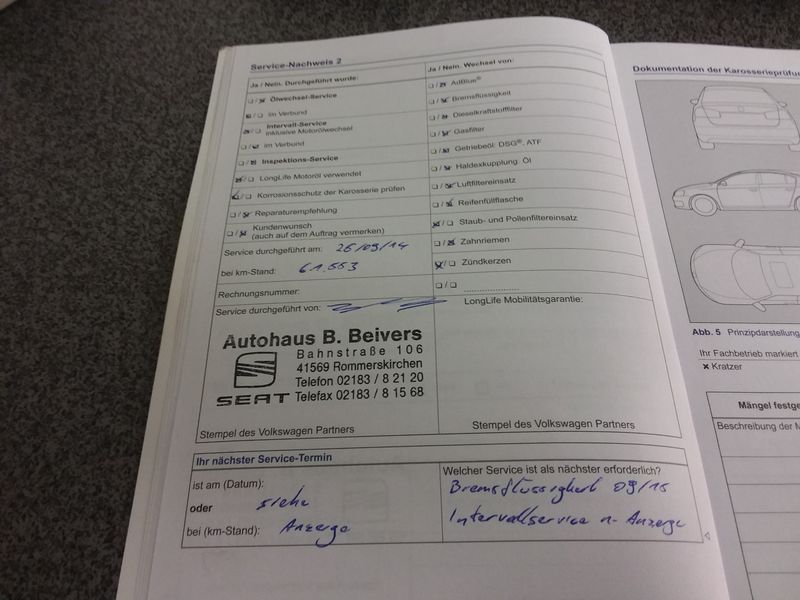 Service-Nachweis 2
Ja / Nein. Durchgeführt wurde:
Ölwechsel-Service
im Verbund
Intervall-Service
inklusive Motorölwechsel
im Verbund
Inspektions-Service
LongLife Motoröl verwendet
Korrosionsschutz der Karosserie prüfen
Reparaturempfehlung
Kundenwunsch
(auch auf dem Auftrag vermerken)
Service durchgeführt am: 26/09/14
bei km-Stand: 61.553
Rechnungsnummer:
Service durchgeführt von:
Autohaus B. Beivers
Bahnstraße 106
41569 Rommerskirchen
Telefon 02183 / 8 21 20
Telefax 02183 / 8 15 68
SEAT
Stempel des Volkswagen Partners
Ja / Nein. Wechsel von:
AdBlue®
Bremsflüssigkeit
Dieselkraftstofffilter
Gasfilter
Getriebeöl: DSG®, ATF
Haldexkupplung: Öl
Luftfiltereinsatz
Reifenfüllflasche
Staub- und Pollenfiltereinsatz
Zahnriemen
Zündkerzen
LongLife Mobilitätsgarantie:
Stempel des Volkswagen Partners
Ihr nächster Service-Termin
ist am (Datum):
oder siehe
bei (km-Stand): Anzeige
Welcher Service ist als nächster erforderlich?
Bremsflüssigkeit 09/15
Intervallservice n. Anzeige
Dokumentation der Karosserieprüfu
Abb. 5 Prinzipdarstellung
Ihr Fachbetrieb markiert
× Kratzer
Mängel festge
Beschreibung der M